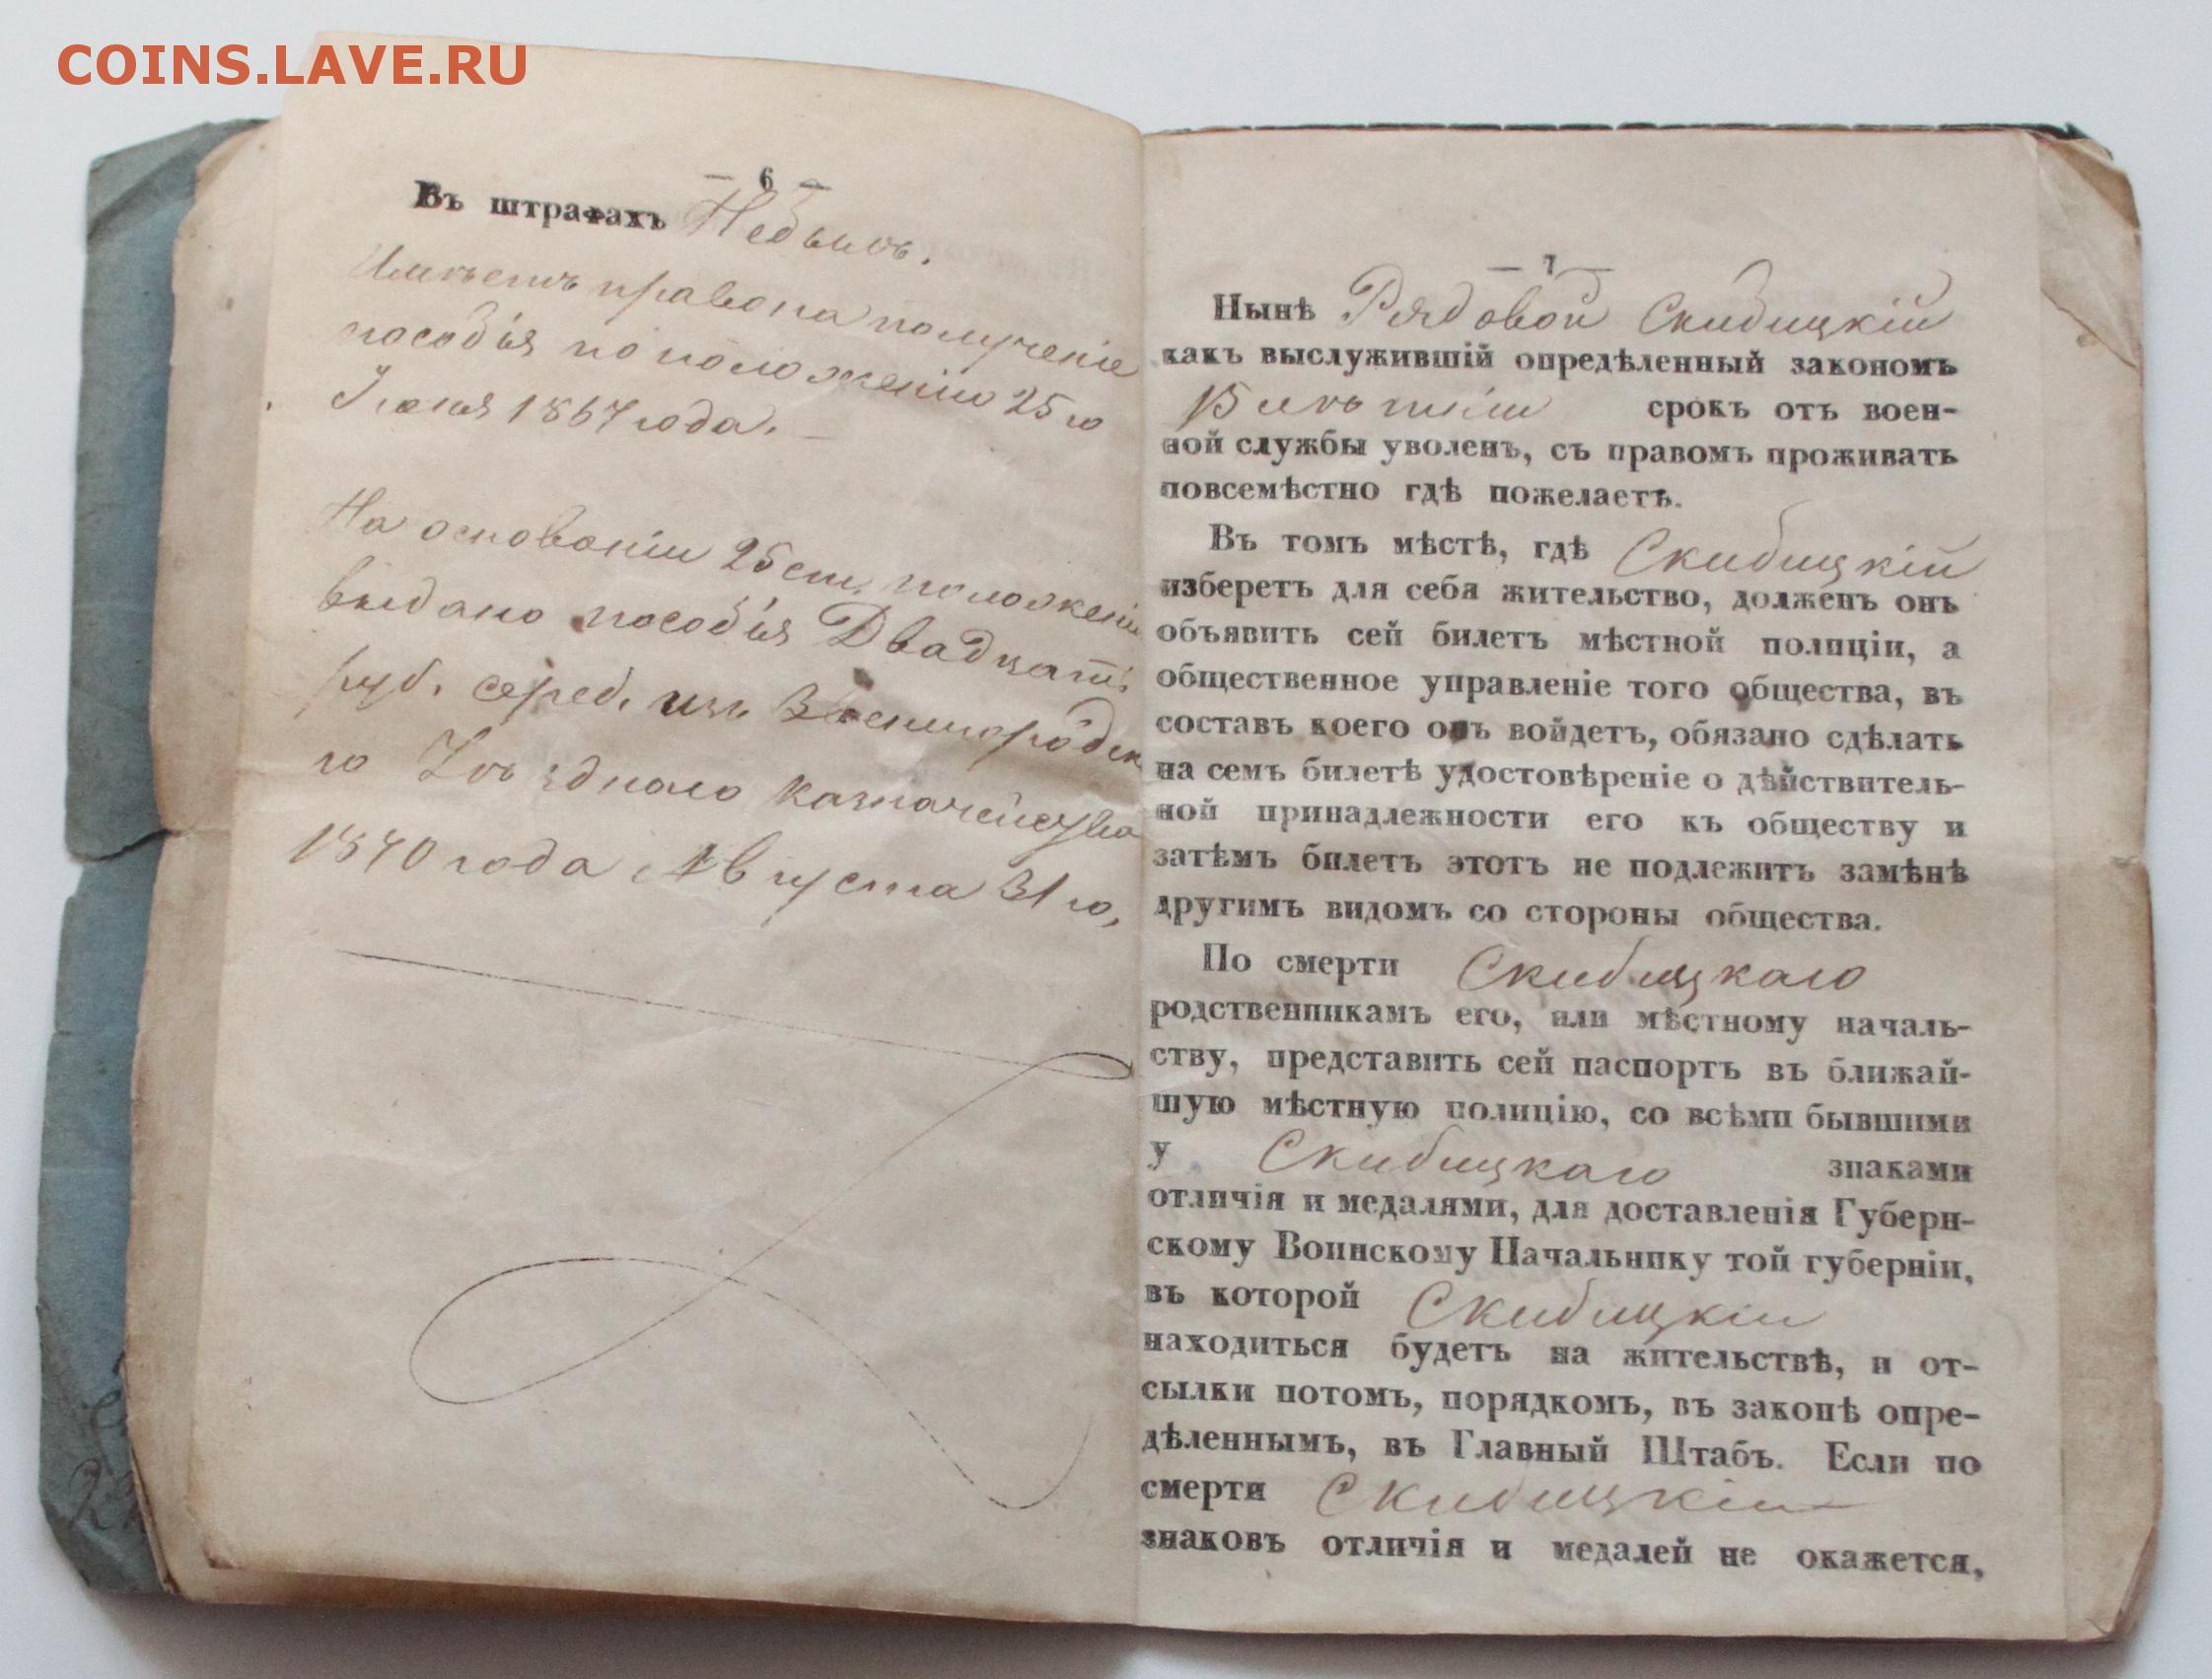 COINS.LAVE.RU
— 6 —
Въ штрафахъ Небылъ.
Имѣетъ право на полученіе
пособія по положенію 25 го
Іюня 1867 года. —
На основаніи 25 ст. положенія
выдано пособія Двадцать
руб. сереб. изъ Звенигородск
го Уѣзднаго казначейства
1870 года Августа 31 го,
— 7 —
Нынѣ Рядовой Скибицкій
какъ выслужившій опредѣленный закономъ
15 лѣтній срокъ отъ воен-
ной службы уволенъ, съ правомъ проживать
повсемѣстно гдѣ пожелаетъ.
Въ томъ мѣстѣ, гдѣ Скибицкій
изберетъ для себя жительство, долженъ онъ
объявить сей билетъ мѣстной полиціи, а
общественное управленіе того общества, въ
составъ коего онъ войдетъ, обязано сдѣлать
на семъ билетѣ удостовѣреніе о дѣйствитель-
ной принадлежности его къ обществу и
затѣмъ билетъ этотъ не подлежитъ замѣнѣ
другимъ видомъ со стороны общества.
По смерти Скибицкаго
родственникамъ его, или мѣстному началь-
ству, представить сей паспортъ въ ближай-
шую мѣстную полицію, со всѣми бывшими
у Скибицкаго знаками
отличія и медалями, для доставленія Губерн-
скому Воинскому Начальнику той губерніи,
въ которой Скибицкій
находиться будетъ на жительствѣ, и от-
сылки потомъ, порядкомъ, въ законѣ опре-
дѣленнымъ, въ Главный Штабъ. Если по
смерти Скибицкій
знаковъ отличія и медалей не окажется,